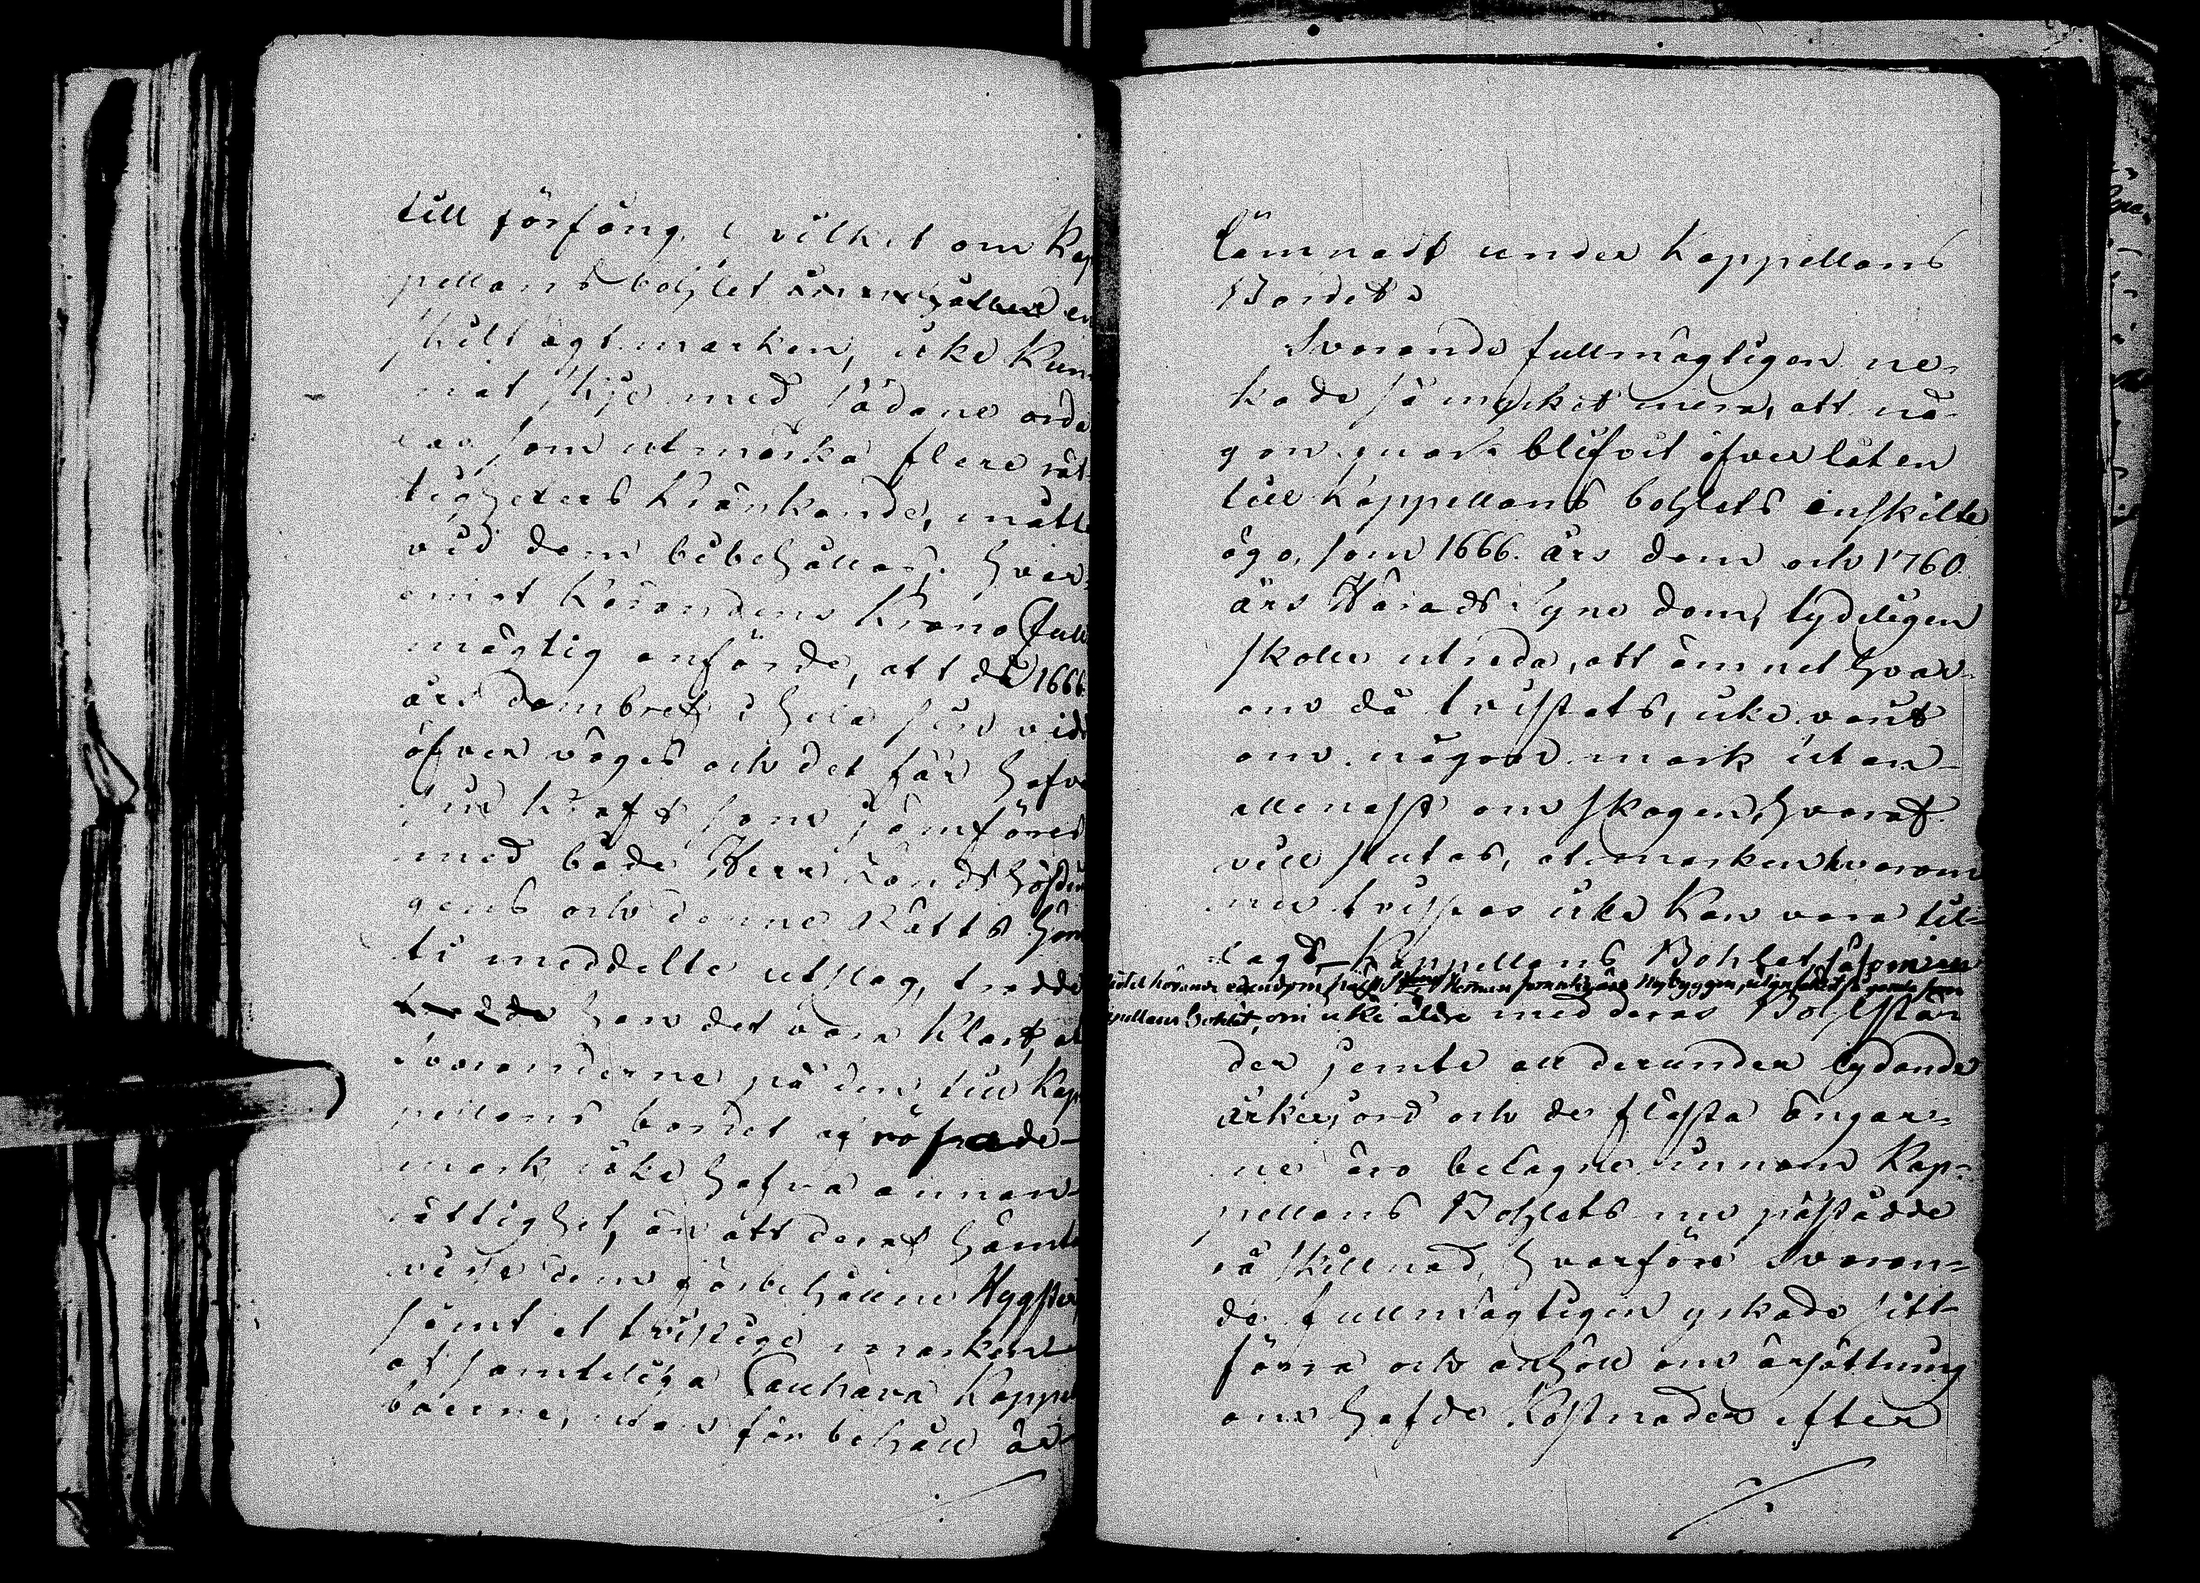 till förfång, hvilket om Kap
pellans bohlet en
skilt ägt marken, icke kun-
nat skje med sådane orda
lag som utmärka flere rät-
tigheters kränkande, måtte
vid dem bibehållas; Hvar-
emot Kärandens Krono Full
mägtig anförde, att då 1666
års dombref i hela sin vidd
öfver väges och det får hafva
sin kraft som jämföres
med både Herr Landshöfdin
gens och denne Rätts häru
ti meddelte utslag, trodde
han det vara klart, at
Svaranderne på den till Kap
pellans bordet
mark icke hafva annan
rättighet, än att deraf hämta
visse dem förbehållne
samt at tvistige marken
af samteliga Lauhava Kappel
boerne, utan förbehåll är
lämnadt under Kappellans
Bordet.
Svarande fullmägtigen ne-
kade så mycket mera, att nå-
gon mark blifvit öfverlåten
till Kappellans bohlets enskilte
ägo, som 1666. års dom och 1760
års Härads Syne dom, tydeligen
skolle utreda, att ämnet hvar-
om då tvistats, icke varit
om någon mark utan
allenast om skogen, hvaraf
vill slutas, at marken hvarom
nu tvistas icke kan vara till-
lagd Kappellans Bohlet, såsom en
pellans bohlet, om icke äldre med deras Bohlstä
der jemte all derunder lydande
åkerjord och de flästa ängar-
ne äro belägne innom Kap-
pellans Bohlets nu påstådde
rå skillnad, hvarföre Svaran-
de fullmägtigen yrkade sitt
förra och anhöll om ärsättning
om hafde Kostnader efter